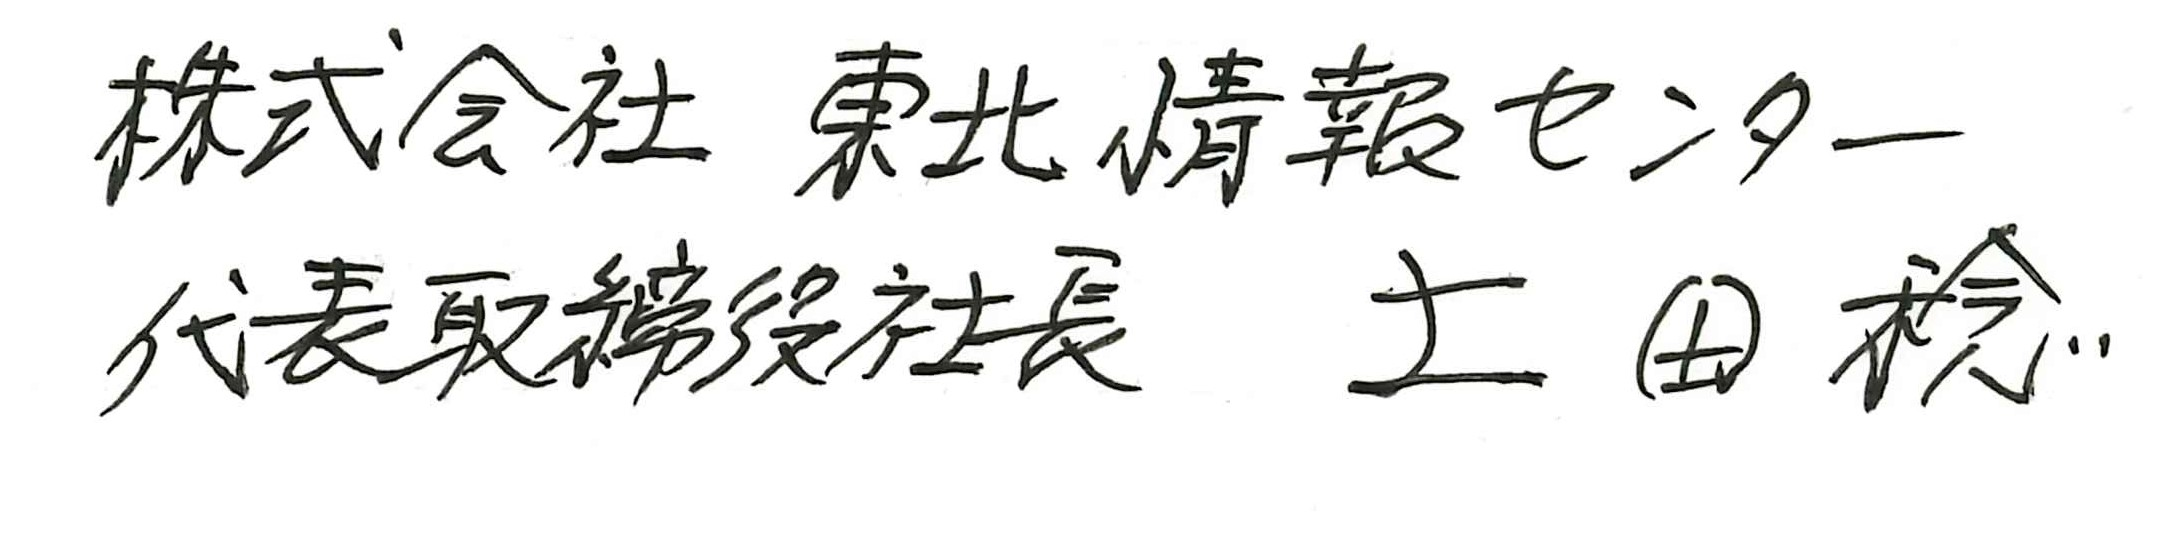 株式会社 東北情報センター
代表取締役社長 土田稔